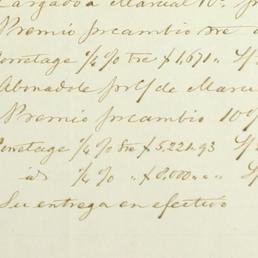 Cargado a Marcial 10%
Premio pr cambio
Corretage ¼ % Sre $1,671"
Abonadole
Premio pr cambio 10%
Corretage ¼ % Sre $5,221.93
id ¼ % " $8,000 " "
Su entrega en efectivo